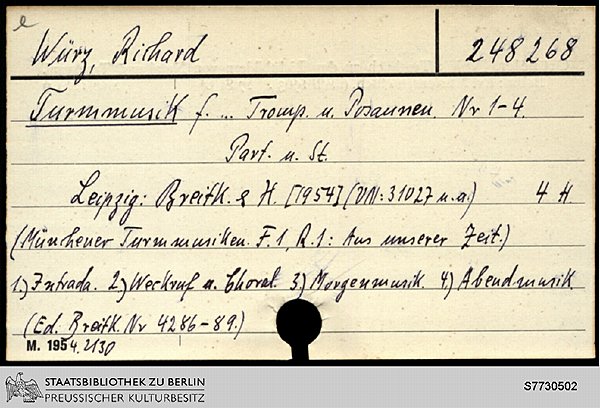 e
Würz, Richard 248268
Turmmusik f. ... Tromp. u. Posaunen. Nr 1-4.
Part. u. St.
Leipzig: Breitk. & H. [1954] (VN: 31027 u.a.) 4 H
(Münchener Turmmusiken. F.1, R.1: Aus unserer Zeit.)
1.) Intrada. 2) Weckruf u. Choral. 3) Morgenmusik. 4) Abendmusik
(Ed. Breitk. Nr 4286-89.)
M. 1954.2130
STAATSBIBLIOTHEK ZU BERLIN
PREUSSISCHER KULTURBESITZ
S7730502